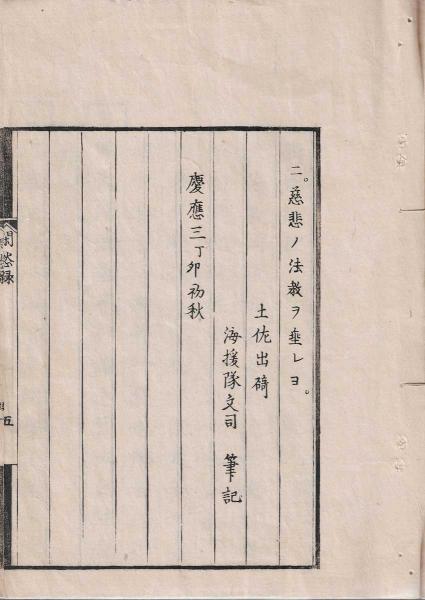 ニ。慈悲ノ法教ヲ垂レヨ。
土佐出碕
海援隊文司 筆記
慶應三丁卯初秋
閑愁録
五